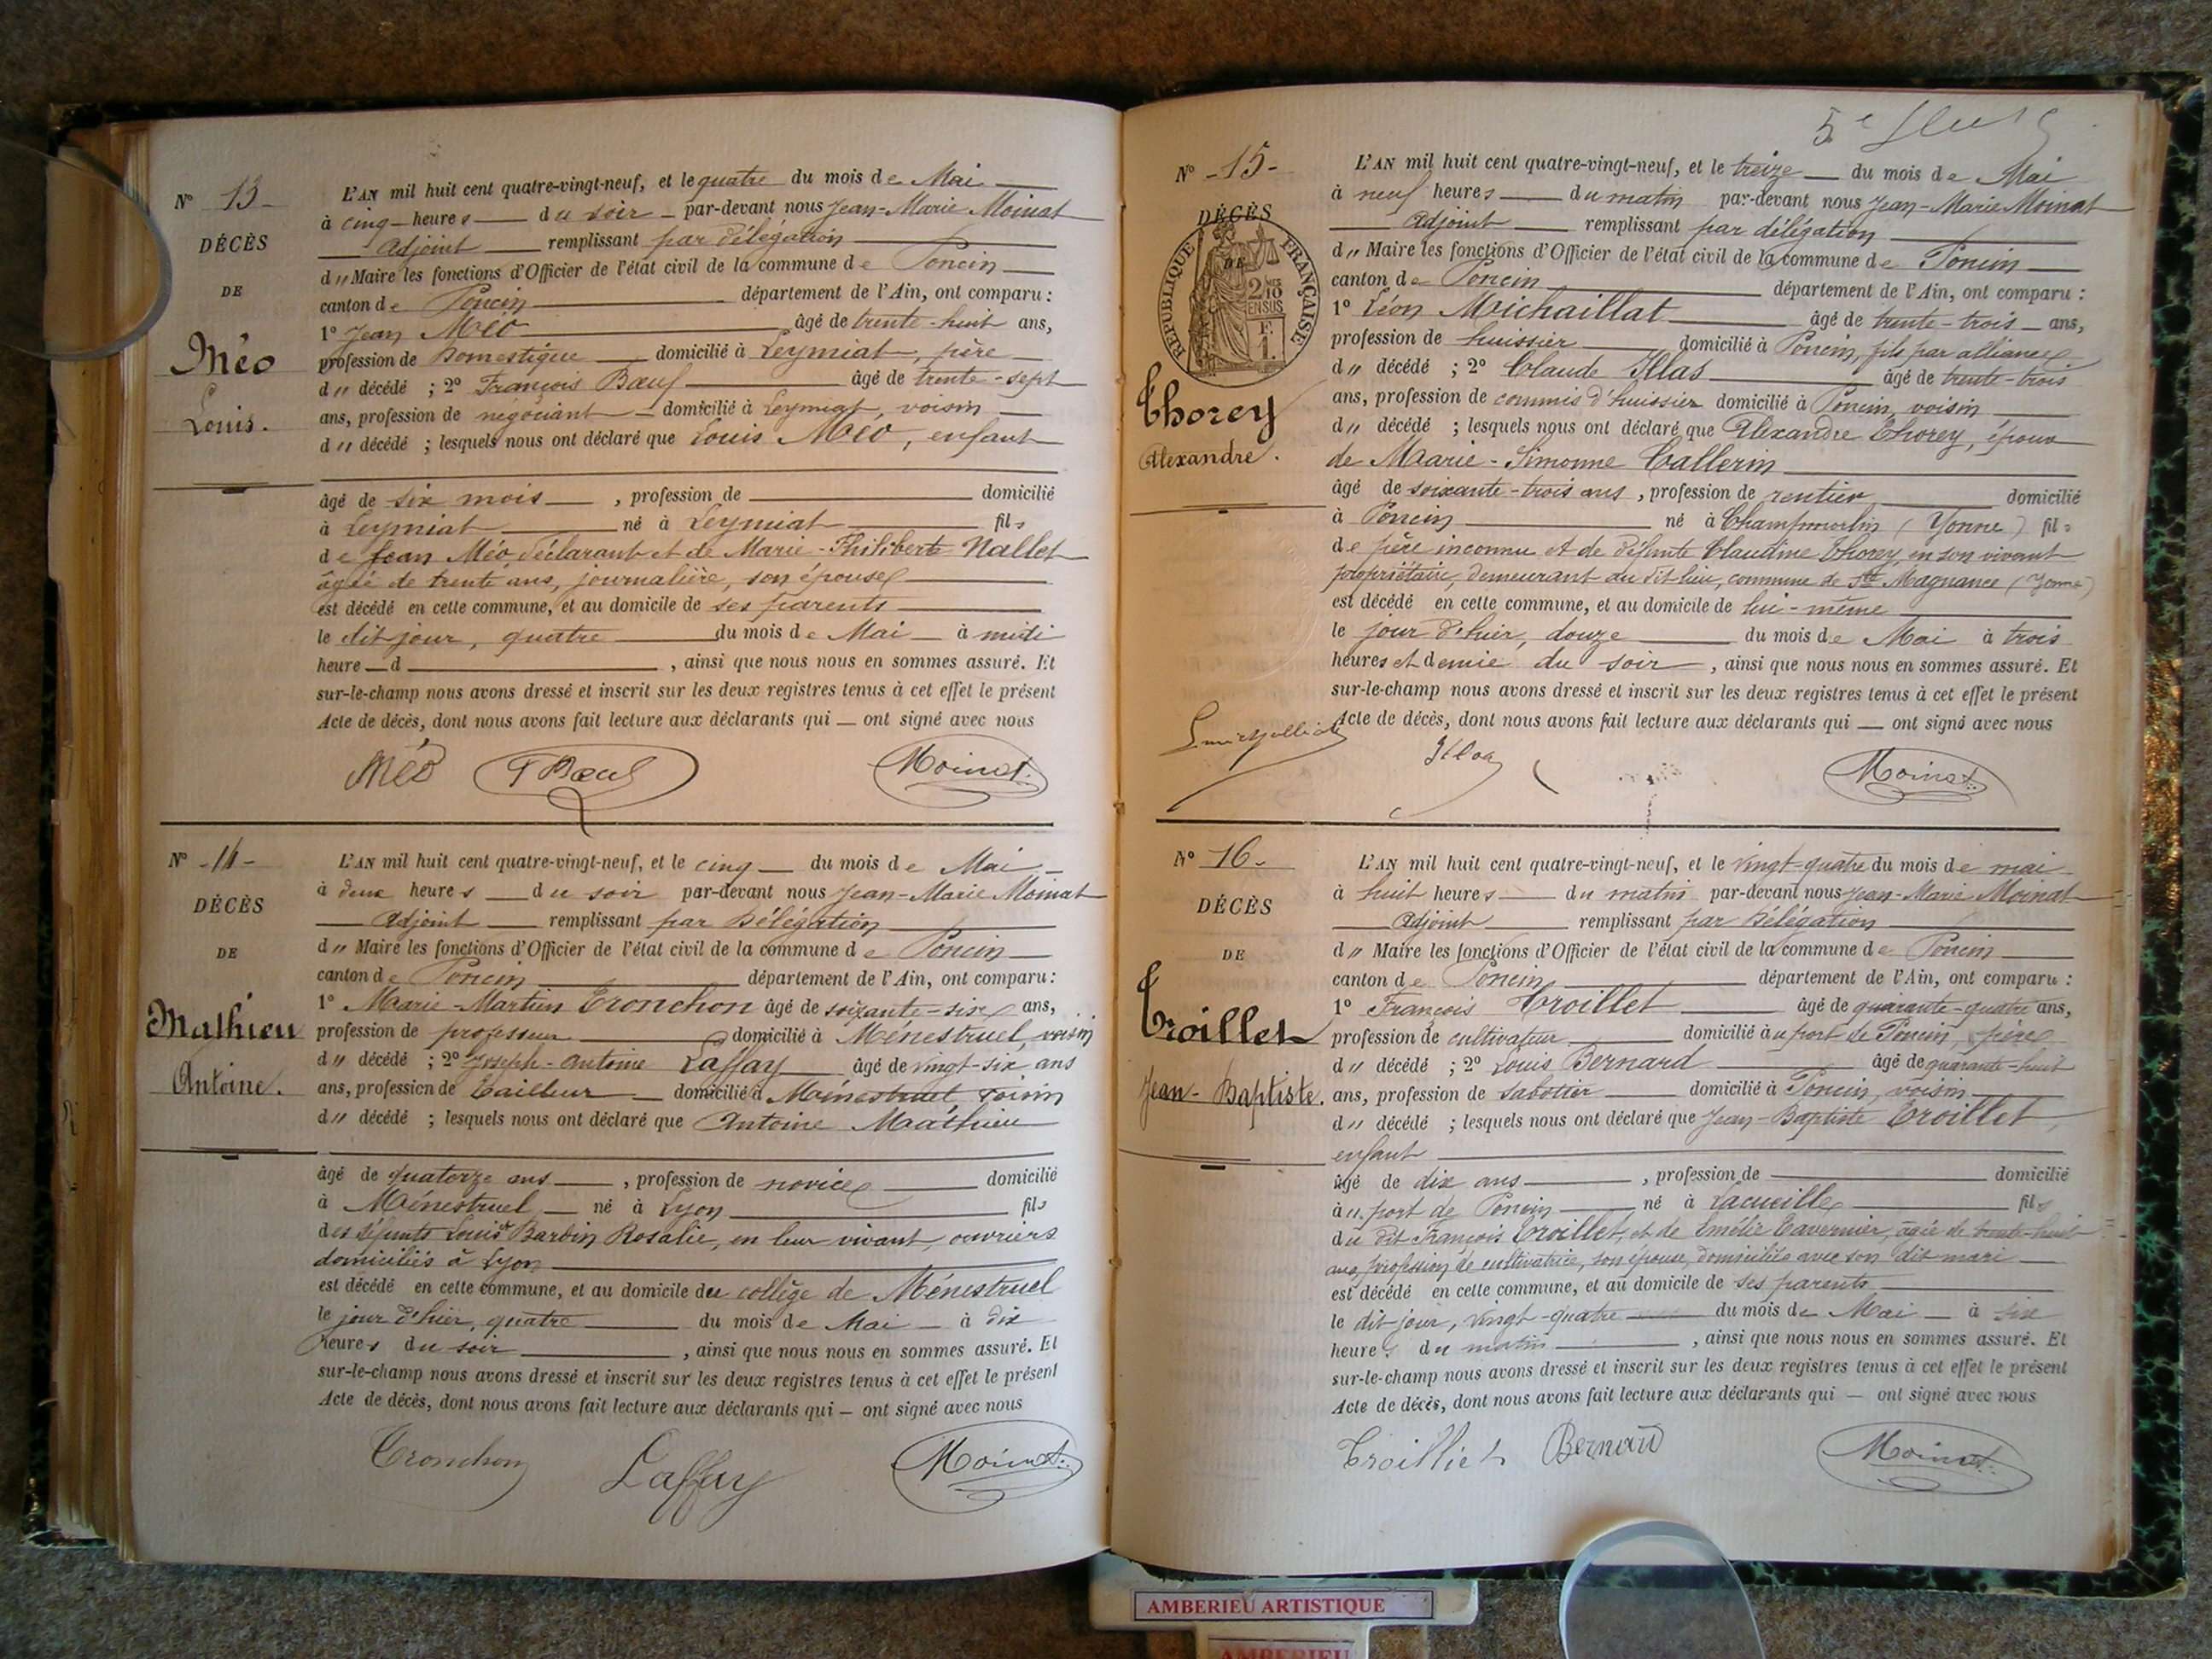 N° 13-
DÉCÈS
DE
Méo
Louis.
L'AN mil huit cent quatre-vingt-neuf, et le quatre du mois de Mai
à cinq heures du soir par-devant nous Jean-Marie Moinat
Adjoint remplissant par délégation
d" Maire les fonctions d'Officier de l'état civil de la commune de Poncin
canton de Poncin département de l'Ain, ont comparu :
1° Jean Méo âgé de trente-huit ans,
profession de Domestique domicilié à Leymiat, père
d" décédé ; 2° François Bœuf âgé de trente-sept
ans, profession de négociant domicilié à Leymiat, voisin
d" décédé ; lesquels nous ont déclaré que Louis Méo, enfant
âgé de six mois , profession de domicilié
à Leymiat né à Leymiat fils
de Jean Méo, déclarant et de Marie-Philiberte Nallet
âgée de trente ans, journalière, son épouse
est décédé en cette commune, et au domicile de ses parents
le dit jour, quatre du mois de Mai à midi
heure d , ainsi que nous nous en sommes assuré. Et
sur-le-champ nous avons dressé et inscrit sur les deux registres tenus à cet effet le présent
Acte de décès, dont nous avons fait lecture aux déclarants qui — ont signé avec nous
Méo F Bœuf Moinat
N° -14-
DÉCÈS
DE
Mathieu
Antoine.
L'AN mil huit cent quatre-vingt-neuf, et le cinq du mois de Mai
à deux heures du soir par-devant nous Jean-Marie Moinat
Adjoint remplissant par Délégation
d" Maire les fonctions d'Officier de l'état civil de la commune de Poncin
canton de Poncin département de l'Ain, ont comparu :
1° Marie-Martin Tronchon âgé de soixante-six ans,
profession de professeur domicilié à Ménestruel, voisin
d" décédé ; 2° Joseph-Antoine Laffay âgé de vingt-six ans
ans, profession de Tailleur domicilié à Ménestruel, voisin
d" décédé ; lesquels nous ont déclaré que Antoine Maathieu
âgé de quatorze ans , profession de novice domicilié
à Ménestruel né à Lyon fils
des défunts Louis et Barbin Rosalie, en leur vivant, ouvriers
domiciliés à Lyon
est décédé en cette commune, et au domicile du collège de Ménestruel
le jour d'hier, quatre du mois de Mai à dix
heures du soir , ainsi que nous nous en sommes assuré. Et
sur-le-champ nous avons dressé et inscrit sur les deux registres tenus à cet effet le présent
Acte de décès, dont nous avons fait lecture aux déclarants qui — ont signé avec nous
Tronchon Laffay Moinat
5e
N° -15-
DÉCÈS
DE
RÉPUBLIQUE FRANÇAISE
2/10 EN SUS
F. 1.
Thorey
Alexandre.
L'AN mil huit cent quatre-vingt-neuf, et le treize du mois de Mai
à neuf heures du matin par-devant nous Jean-Marie Moinat
Adjoint remplissant par délégation
d" Maire les fonctions d'Officier de l'état civil de la commune de Poncin
canton de Poncin département de l'Ain, ont comparu :
1° Léon Michaillat âgé de trente-trois ans,
profession de huissier domicilié à Poncin, fils par alliance
d" décédé ; 2° Claude Illas âgé de trente-trois
ans, profession de commis d'huissier domicilié à Poncin, voisin
d" décédé ; lesquels nous ont déclaré que Alexandre Thorey, époux
de Marie-Simonne Callerin
âgé de soixante-trois ans, profession de rentier domicilié
à Poncin né à Champmorlin (Yonne) fils
de père inconnu et de défunte Claudine Thorey, en son vivant
propriétaire, demeurant au dit lieu, commune de Ste Magnance (Yonne)
est décédé en cette commune, et au domicile de lui-même
le jour d'hier, douze du mois de Mai à trois
heures et demie du soir , ainsi que nous nous en sommes assuré. Et
sur-le-champ nous avons dressé et inscrit sur les deux registres tenus à cet effet le présent
Acte de décès, dont nous avons fait lecture aux déclarants qui — ont signé avec nous
Illas Moinat
N° 16-
DÉCÈS
DE
Troillet
Jean-Baptiste.
L'AN mil huit cent quatre-vingt-neuf, et le vingt-quatre du mois de mai
à huit heures du matin par-devant nous Jean-Marie Moinat
Adjoint remplissant par Délégation
d" Maire les fonctions d'Officier de l'état civil de la commune de Poncin
canton de Poncin département de l'Ain, ont comparu :
1° François Troillet âgé de quarante-quatre ans,
profession de cultivateur domicilié au port de Poncin, père
d" décédé ; 2° Louis Bernard âgé de quarante-huit
ans, profession de sabotier domicilié à Poncin, voisin
d" décédé ; lesquels nous ont déclaré que Jean-Baptiste Troillet,
enfant
âgé de dix ans , profession de domicilié
au port de Poncin né à Lacueille fils
du dit François Troillet, et de Emélie Tavernier, agée de trente-huit
ans, profession de cultivatrice, son épouse, domiciliée avec son dit mari
est décédé en cette commune, et au domicile de ses parents
le dit jour, vingt-quatre du mois de Mai à six
heures du matin , ainsi que nous nous en sommes assuré. Et
sur-le-champ nous avons dressé et inscrit sur les deux registres tenus à cet effet le présent
Acte de décès, dont nous avons fait lecture aux déclarants qui — ont signé avec nous
Troilliet Bernard Moinat
AMBERIEU ARTISTIQUE
AMBERIEU